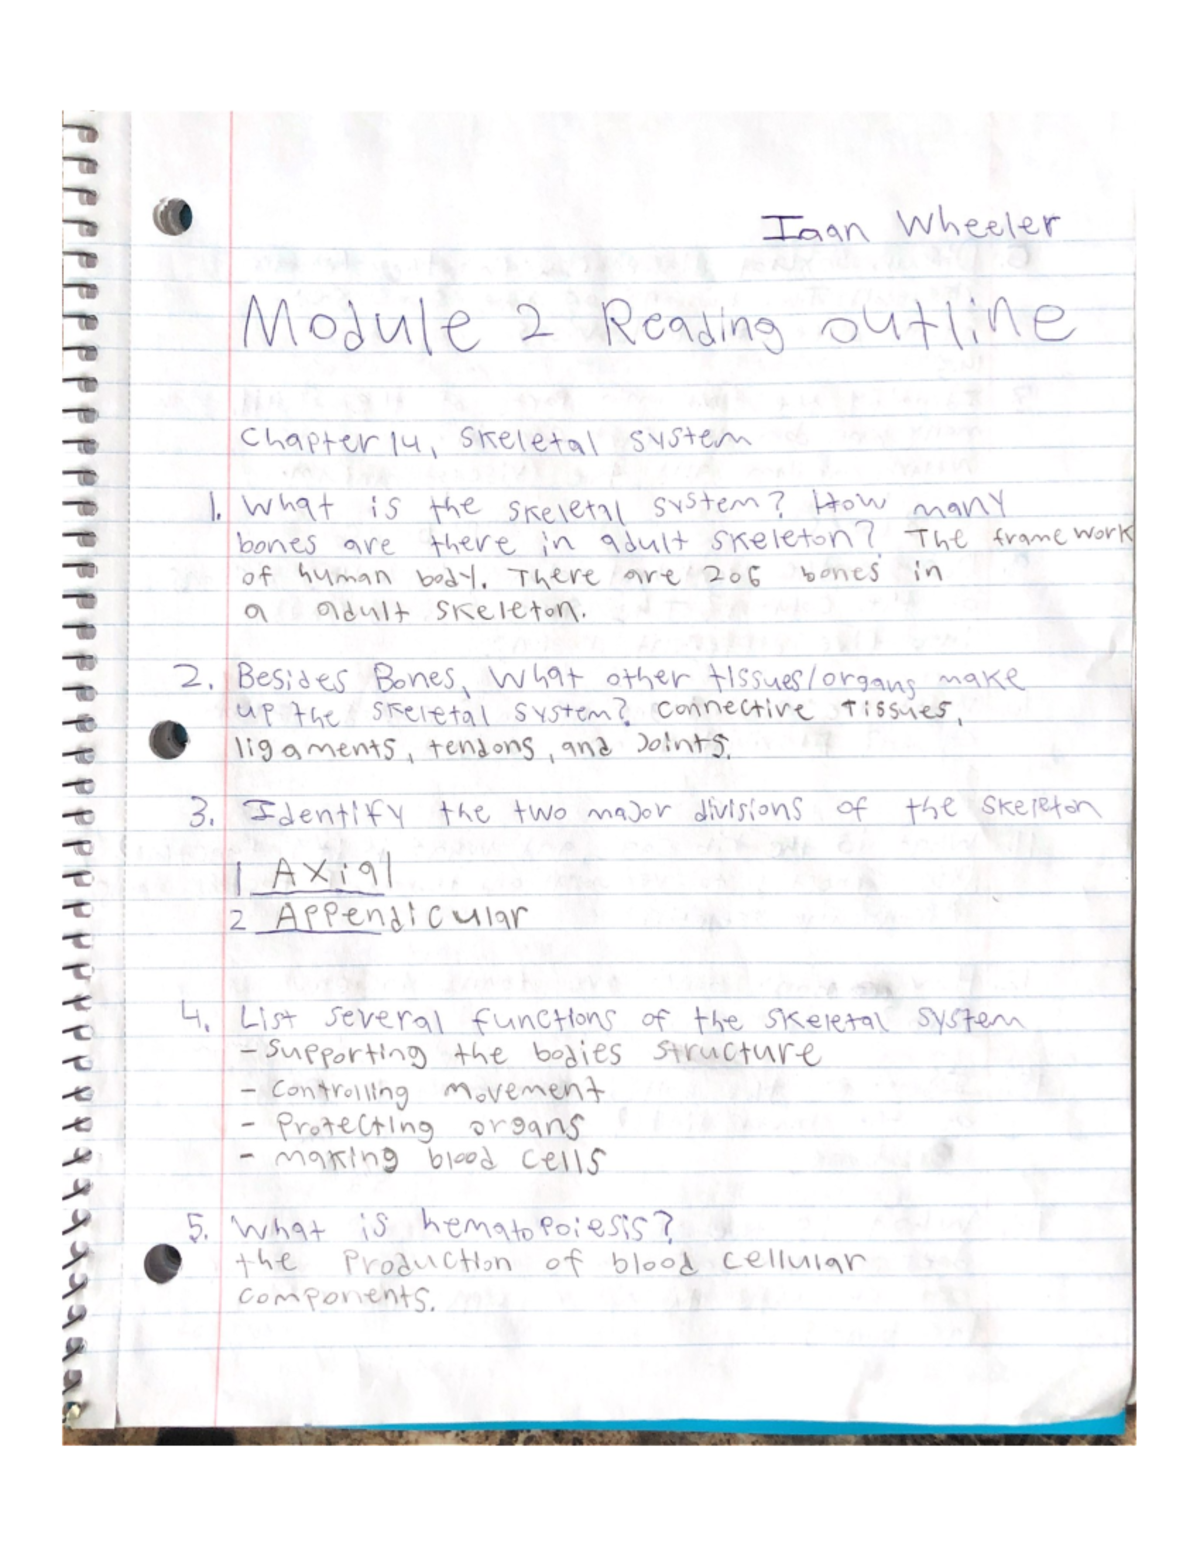 Iaan Wheeler
Module 2 Reading outline
Chapter 14, Skeletal system
1. What is the skeletal system? How many
bones are there in adult skeleton? The framework
of human body. There are 206 bones in
a adult skeleton.
2. Besides Bones, What other tissues/organs make
up the skeletal system? connective tissues,
ligaments, tendons, and Joints.
3. Identify the two major divisions of the skeleton
1 Axial
2 Appendicular
4. List several functions of the skeletal system
- Supporting the bodies structure
- Controlling movement
- Protecting organs
- making blood cells
5. What is hematopoiesis?
the Production of blood cellular
components.